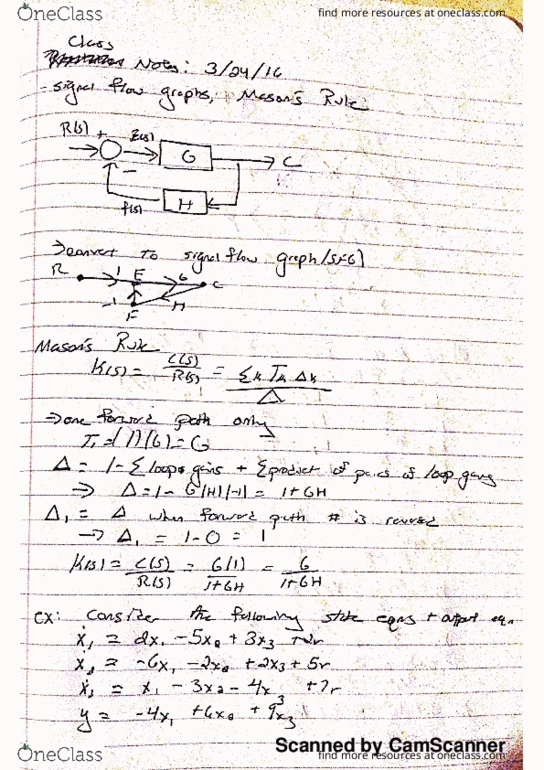 OneClass
find more resources at oneclass.com
Class
Notes: 3/24/16
- signal flow graphs, Mason's Rule
R(s) + E(s) G C
-
F(s) H
→ convert to signal flow graph [SFG]
R 1 E G C
-1 H
F
Mason's Rule
K(s) = C(s)/R(s) = Σk Tk Δk / Δ
⇒ one forward path only
T1 = (1)(G) = G
Δ = 1 - Σ loops gains + Σ product of pairs of loop gains
⇒ Δ = 1 - G(H)(-1) = 1+GH
Δ1 = Δ when forward path # is removed
→ Δ1 = 1-0 = 1
K(s) = C(s)/R(s) = G(1)/1+GH = G/1+GH
ex: Consider the following state eqns + output eqn
ẋ1 = 2x1 - 5x2 + 3x3 + 2r
ẋ2 = -6x1 - 2x2 + 2x3 + 5r
ẋ3 = x1 - 3x2 - 4x3 + 7r
y = -4x1 + 6x2 + 9x3
Scanned by CamScanner
OneClass
find more resources at oneclass.com